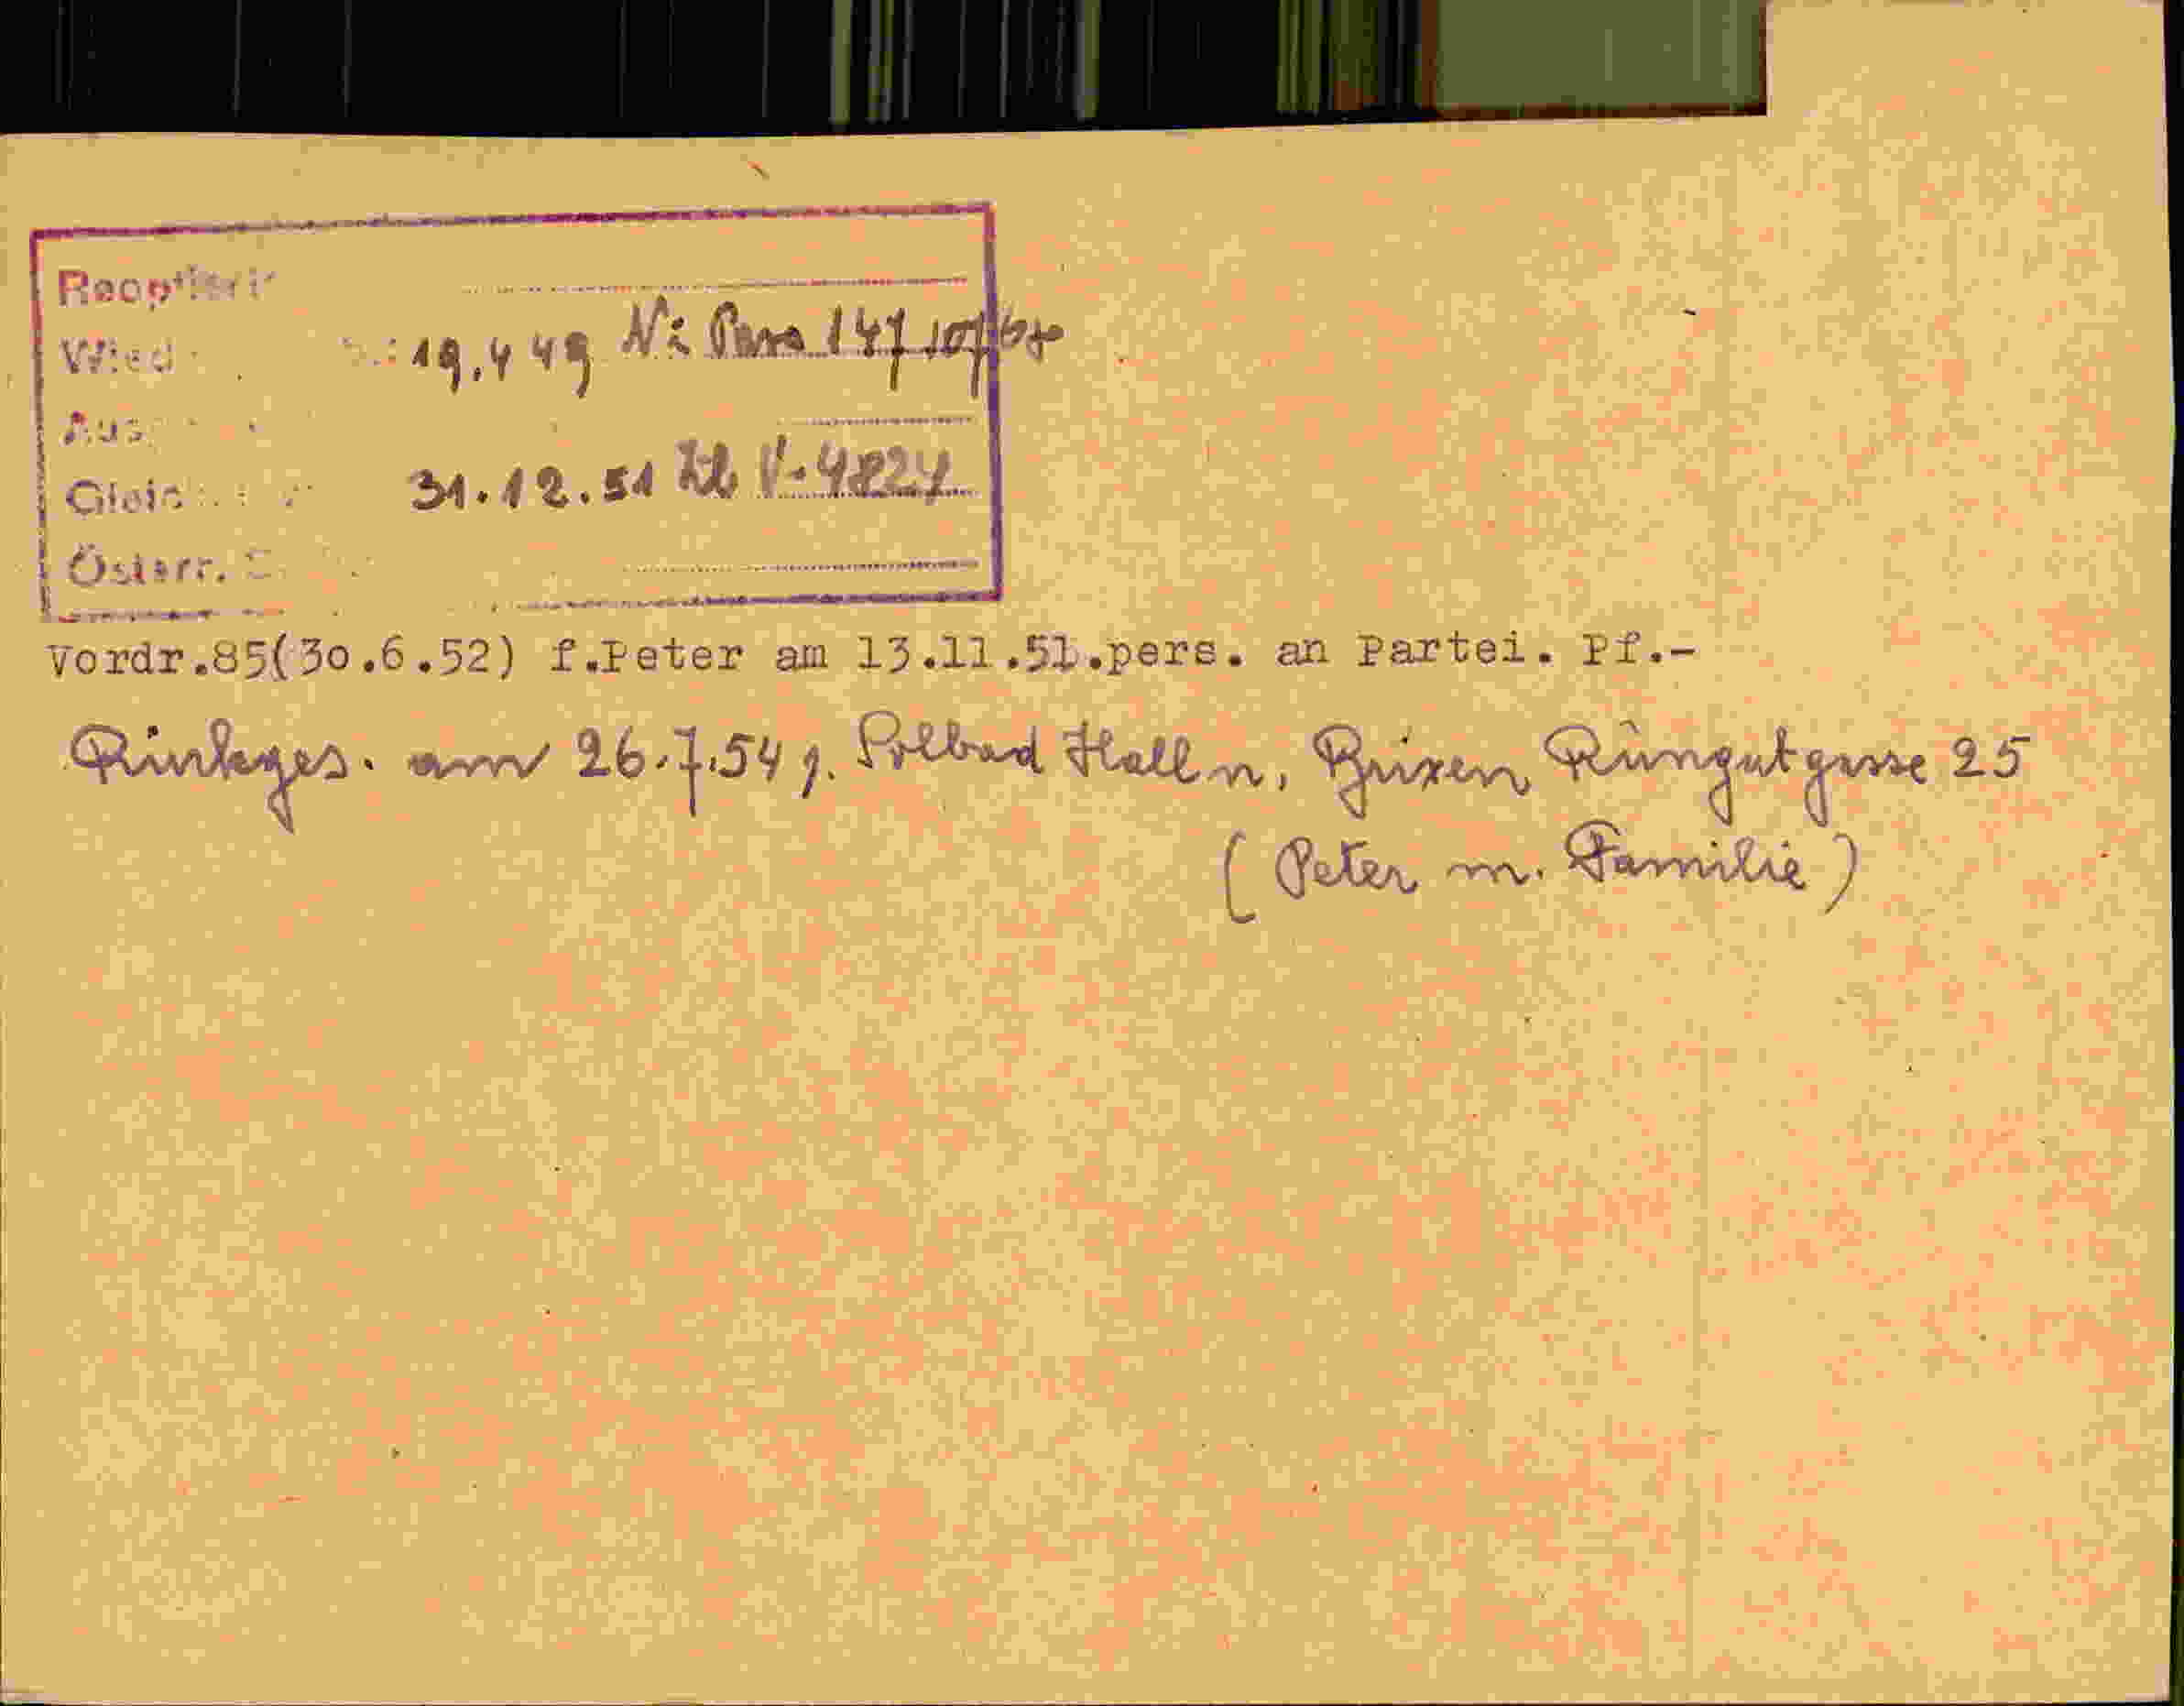 Reoptiert
Wied 19.4 49 N: Pers 147
31.12.51 Zl V-4824
Österr.
Vordr.85(30.6.52) f.Peter am 13.11.51.pers. an Partei. Pf.-
Rückges. am 26.7.54 v. Solbad Hall n. Brixen Rungutgasse 25
(Peter m. Familie)